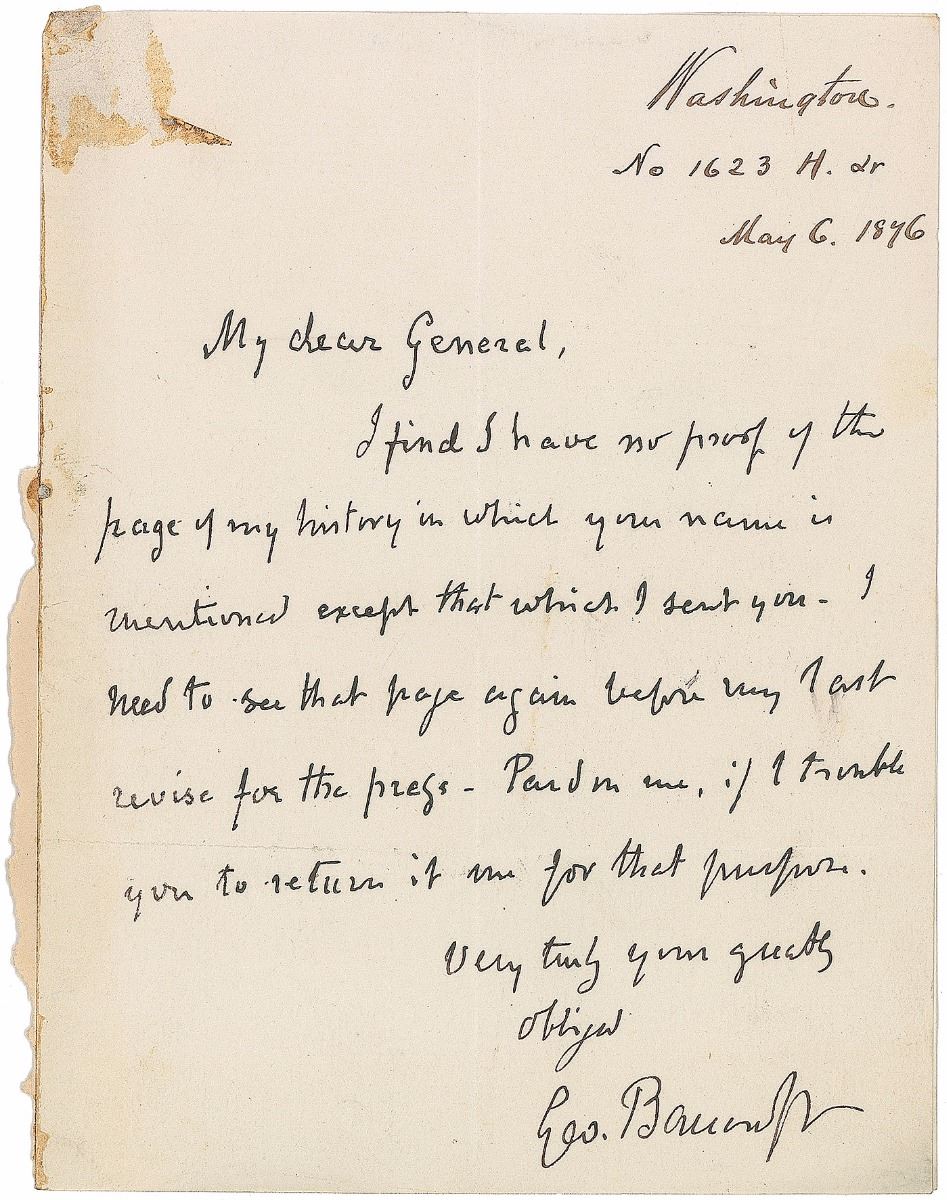 Washington.
No 1623 H. str
May 6. 1876
My dear General,
I find I have no proof of the
page of my history in which your name is
mentioned except that which I sent you - I
need to see that page again before my last
revise for the press - Pardon me, if I trouble
you to return it me for that purpose.
Very truly your greatly
obliged
Geo. Bancroft